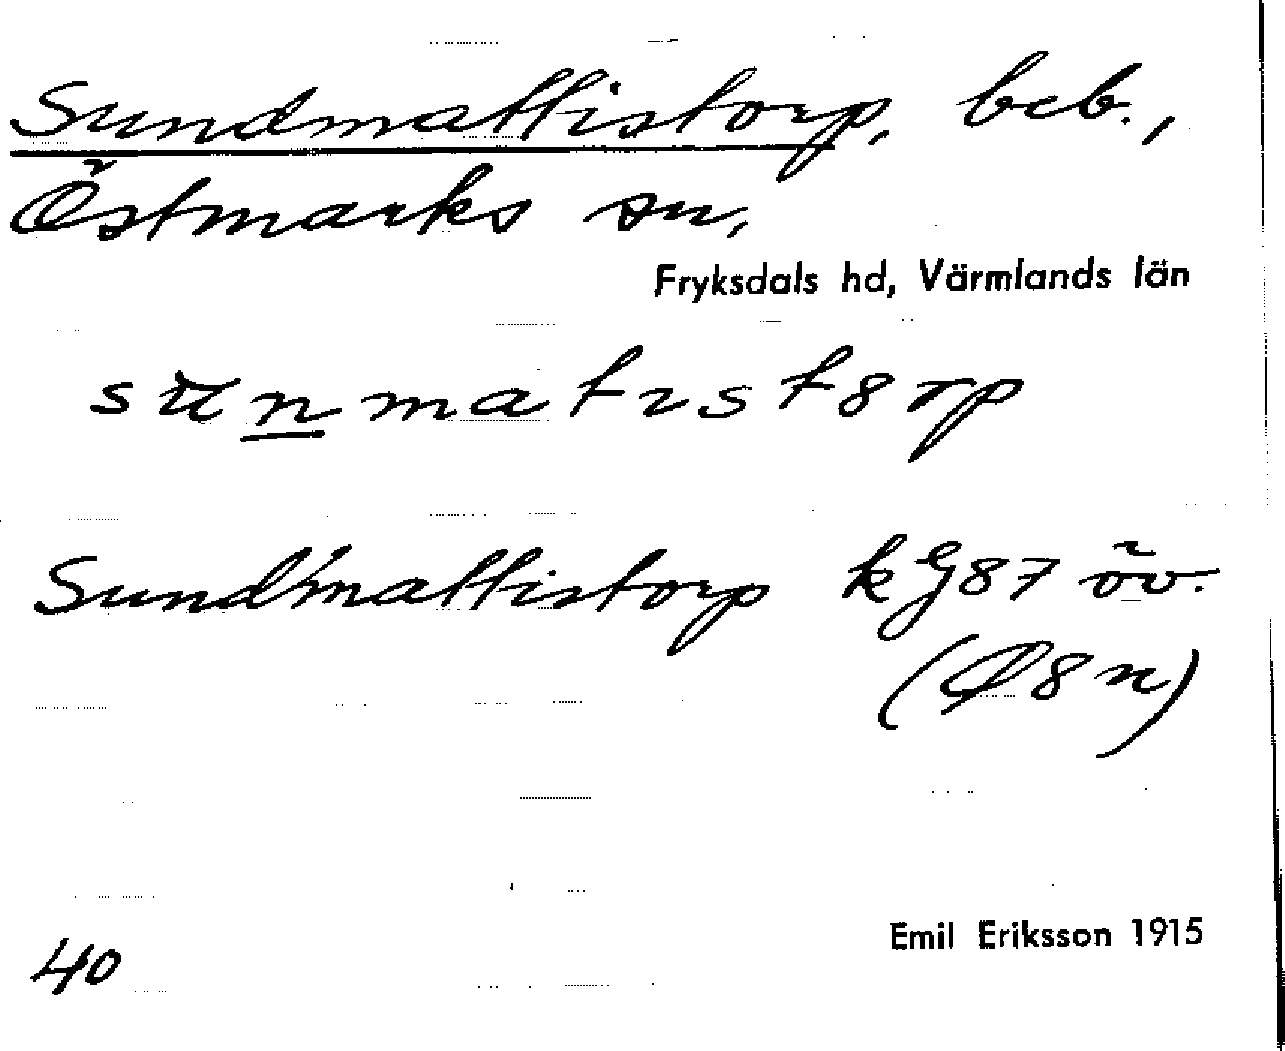 Sundmattistorp, beb.,
Östmarks sn,
Fryksdals hd, Värmlands län
Sundmattistorp kG87 öv.
(Ø8n)
40
Emil Eriksson 1915